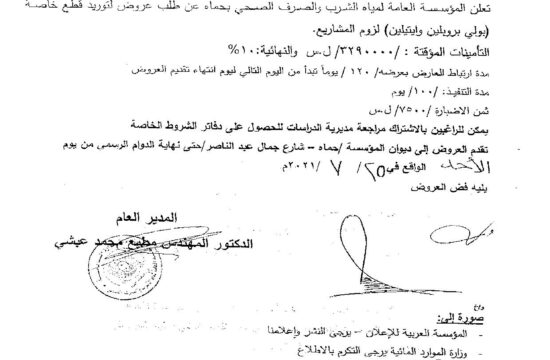 تعلن المؤسسة العامة لمياه الشرب والصرف الصحي بحماه عن طلب عروض لتوريد قطع خاصة
(بولي بروبلين وايتيلين) لزوم المشاريع.
التأمينات المؤقتة : /٣٢٩٠٠٠٠/ ل.س والنهائية: ١٠%
مدة ارتباط العارض بعرضه/ ١٢٠ /يوماً تبدأ من اليوم التالي ليوم انتهاء تقديم العروض
مدة التنفيذ: /١٠٠/ يوم
ثمن الاضبارة /٧٥٠٠/ ل.س
يمكن للراغبين بالاشتراك مراجعة مديرية الدراسات للحصول على دفاتر الشروط الخاصة
تقدم العروض إلى ديوان المؤسسة /حماه – شارع جمال عبد الناصر/حتى نهاية الدوام الرسمي من يوم
الأحد الواقع في ٢٥/ ٧ /٢٠٢١م
يليه فض العروض
المدير العام
الدكتور المهندس مطيع محمد عبشي
صورة إلى:
- المؤسسة العربية للإعلان – يرجى النشر وإعلامنا
- وزارة الموارد المائية يرجى التكرم بالاطلاع